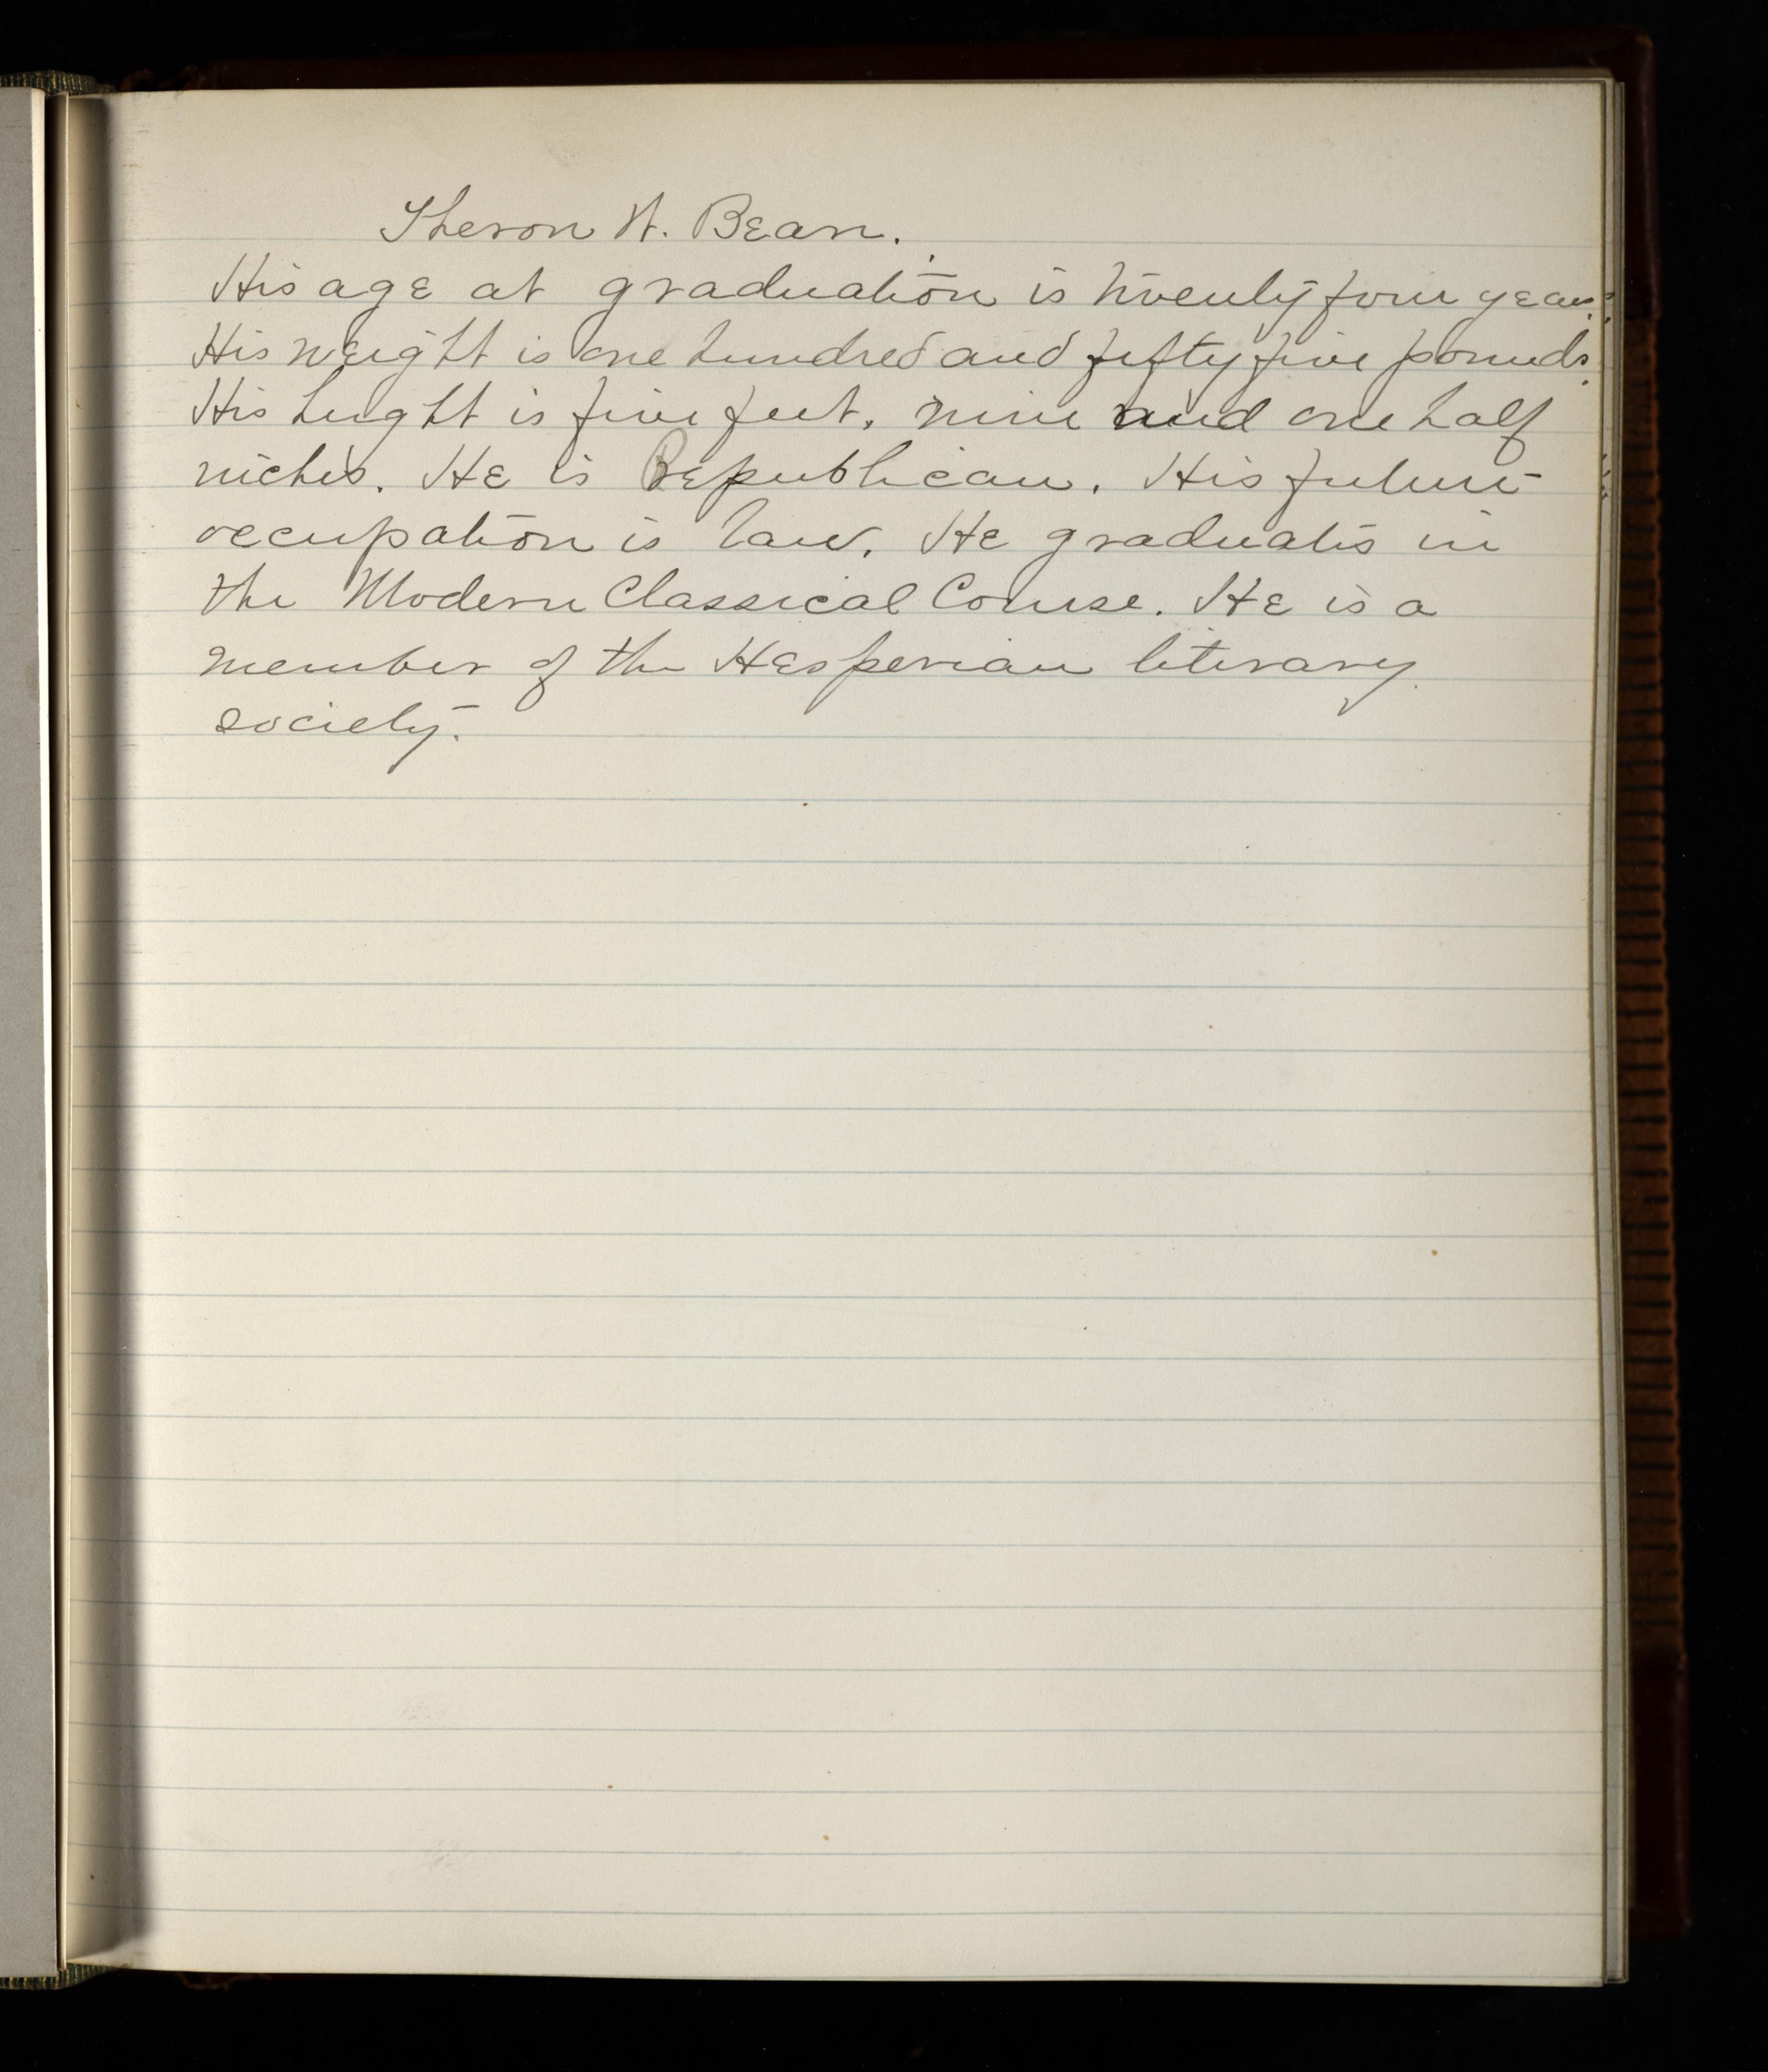 Theron W. Bean.
His age at graduation is twenty four years.
His weight is one hundred and fifty five pounds.
His height is five feet, nine and one half
inches. He is Republican. His future
occupation is law. He graduates in
the Modern Classical Course. He is a
member of the Hesperian literary
society.